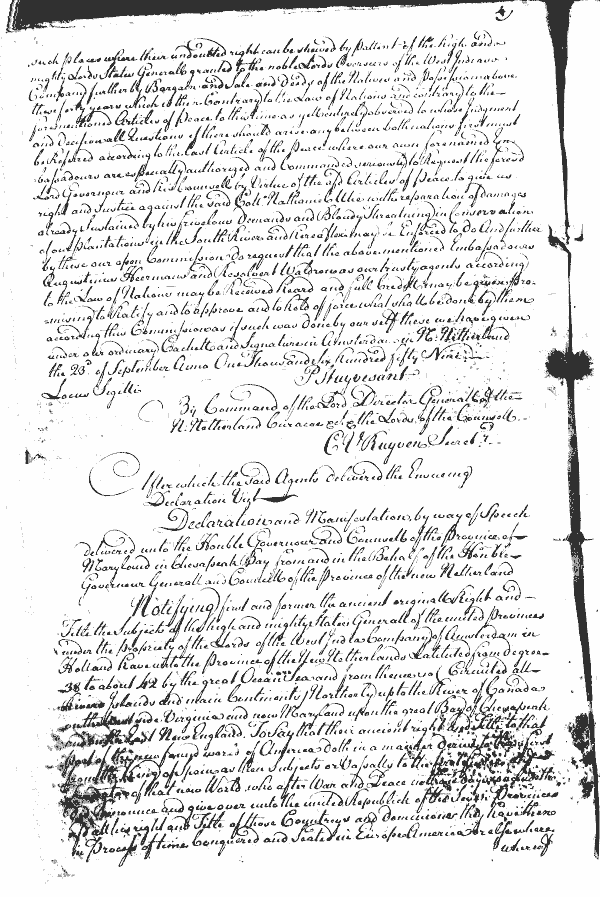 such places where their undoubted right can be shewed by pattent of the high and
mighty Lords States Generall granted to the noble Lords Overseers of the West Indeaw
Company further by Bargain and Sale and Deeds of the Natives and Possession above
these forty years which is then Contrary to the Law of Nations and contrary to the
forementioned Articles of peace to this time as yett entirely observed to whose judgment
and decision all Questions if there should arise any between both nations first must
be Referred according to the last Article of the peace where our aforenamed Em-
bassadours are espetially authorized and Commanded seriously to Request the foresd
Lord Governour and his Counsell by Virtue of the sd Articles of peace to give us
right and Justice against the said Coll: Nathaniel Utie with reparation of damages
already sustained by his frivelous Demands and Bloudy threatning in Conservation
of our plantations in the South River and hereafter may be Enforced to Do And further
by these our open Commission Do request that the abovementioned Embassadours
Augustinus Heermans and Resolvert Waldron as our trusty agents according
to the Law of Nations may be Received heard and full Creditt may be given pro-
mising to Ratify and to approve and to hold of force what shall be done by them
according this Commission as if such was done by our self these we have given
under our ordinary Cachett and Signature in Amsterdam in N: Nitherland
the 23d of September Anno One Thousand six hundred fifty Nine
P Stuyvesant
Locus Sigilli
By Command of the Lord Director Generall of the
N: Netherland Curacoe &c & the Lords of the Counsell
C V Ruyven Secretr
After which the said Agents delivered the Ensueing
Declaration Vizt
Declaration and Manifestation by way of Speech
delivered unto the Honble Governour and Counsell of the Province of
Maryland in Chesapeak Bay from and in the Behalf of the Honble
Governour Generall and Councell of the Province of the new Netherland
Notifying first and former the ancient originall Right and
Title the Subjects of the high and mighty States Generall of the united Provinces
under the Propriety of the Lords of the West Indea Company of Amsterdam in
Holland have unto the Province of the New Netherlands Latituted from degree
38 to about 42 by the great Ocean Sea and from thence so Circuited all
Rivers Islands and main Continents Northerly up to the River of Canada
on the West side Virginia and new Maryland upon the great Bay of Chesapeak
and on the East New England. To Say that their ancient right and Title to that
part of the new found world of America doth in a manner derive to them first
from the King of Spain as then Subjects or Vassalls to the
of that new World who after War and Peace
did renounce and give over unto the united Republick of the Seven Provinces
all his right and Title of those Countreys and dominions they have then
in Process of time Conquered and Seated in Europe America or elsewhere
whereof